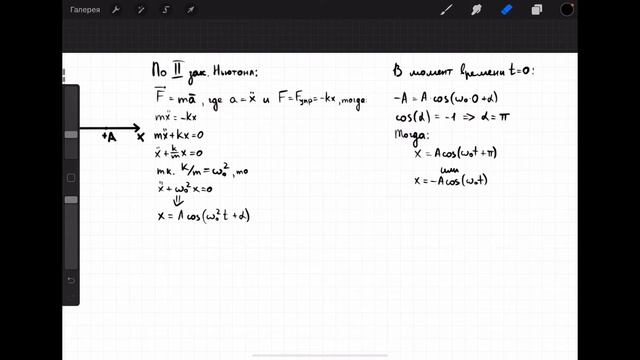 Галерея
По II зак. Ньютона:
F = ma, где a = ẍ и F = Fупр = -kx, тогда:
mẍ = -kx
mẍ + kx = 0
ẍ + k/m x = 0
т.к. k/m = ω₀², то
ẍ + ω₀² x = 0
⇓
x = A cos(ω₀² t + α)
+A x
В момент времени t = 0:
-A = A cos(ω₀·0 + α)
cos(α) = -1 => α = π
Тогда:
x = A cos(ω₀t + π)
или
x = -A cos(ω₀t)